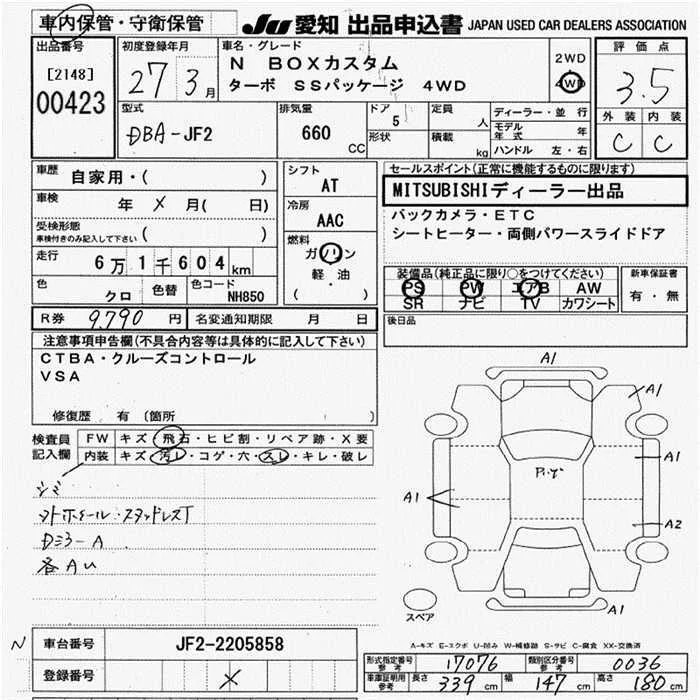 車内保管・守衛保管
JU 愛知 出品申込書 JAPAN USED CAR DEALERS ASSOCIATION
出品番号
[2148]
00423
初度登録年月
27年3月
車名・グレード
N BOXカスタム
ターボ SSパッケージ 4WD
2WD
4WD
評価点
3.5
外装 内装
C C
型式
DBA-JF2
排気量
660
CC
ドア
5
形状
定員
人
積載
kg
ディーラー・並行
モデル年式 年式
ハンドル 左・右
車歴
自家用・( )
車検
年 × 月( 日)
受検形態
車検付きのみ記入して下さい ( )
走行
6万1千604km
色
クロ
色替
色コード
NH850
シフト
AT
冷房
AAC
燃料
ガソリン
軽・油
( )
セールスポイント(正常に機能するものに限ります)
MITSUBISHIディーラー出品
バックカメラ・ETC
シートヒーター・両側パワースライドドア
装備品(純正品に限り○をつけてください)
PS PW エアB AW
SR ナビ TV カワシート
新車保証書
有・無
後日品
R券 9,790 円
名変通知期限 月 日
注意事項申告欄(不具合内容等は具体的に記入して下さい)
CTBA・クルーズコントロール
VSA
修復歴 有 (箇所 )
検査員記入欄
FW キズ・飛石・ヒビ割・リペア跡・X要
内装 キズ・汚レ・コゲ・穴・スレ・キレ・破レ
シミ
外ホイール・スタッドレスT
Dミラー A
各AU
A1
A1
A1
A1
A2
A1
スペア
A-キズ E-エクボ U-凹み W-補修跡 S-サビ C-腐食 XX-交換済
N
車台番号
JF2-2205858
登録番号
×
形式指定番号
参考
17076
類別区分番号
参考
0036
車庫証明用
参考
長さ 339 cm
幅 147 cm
高さ 180 cm